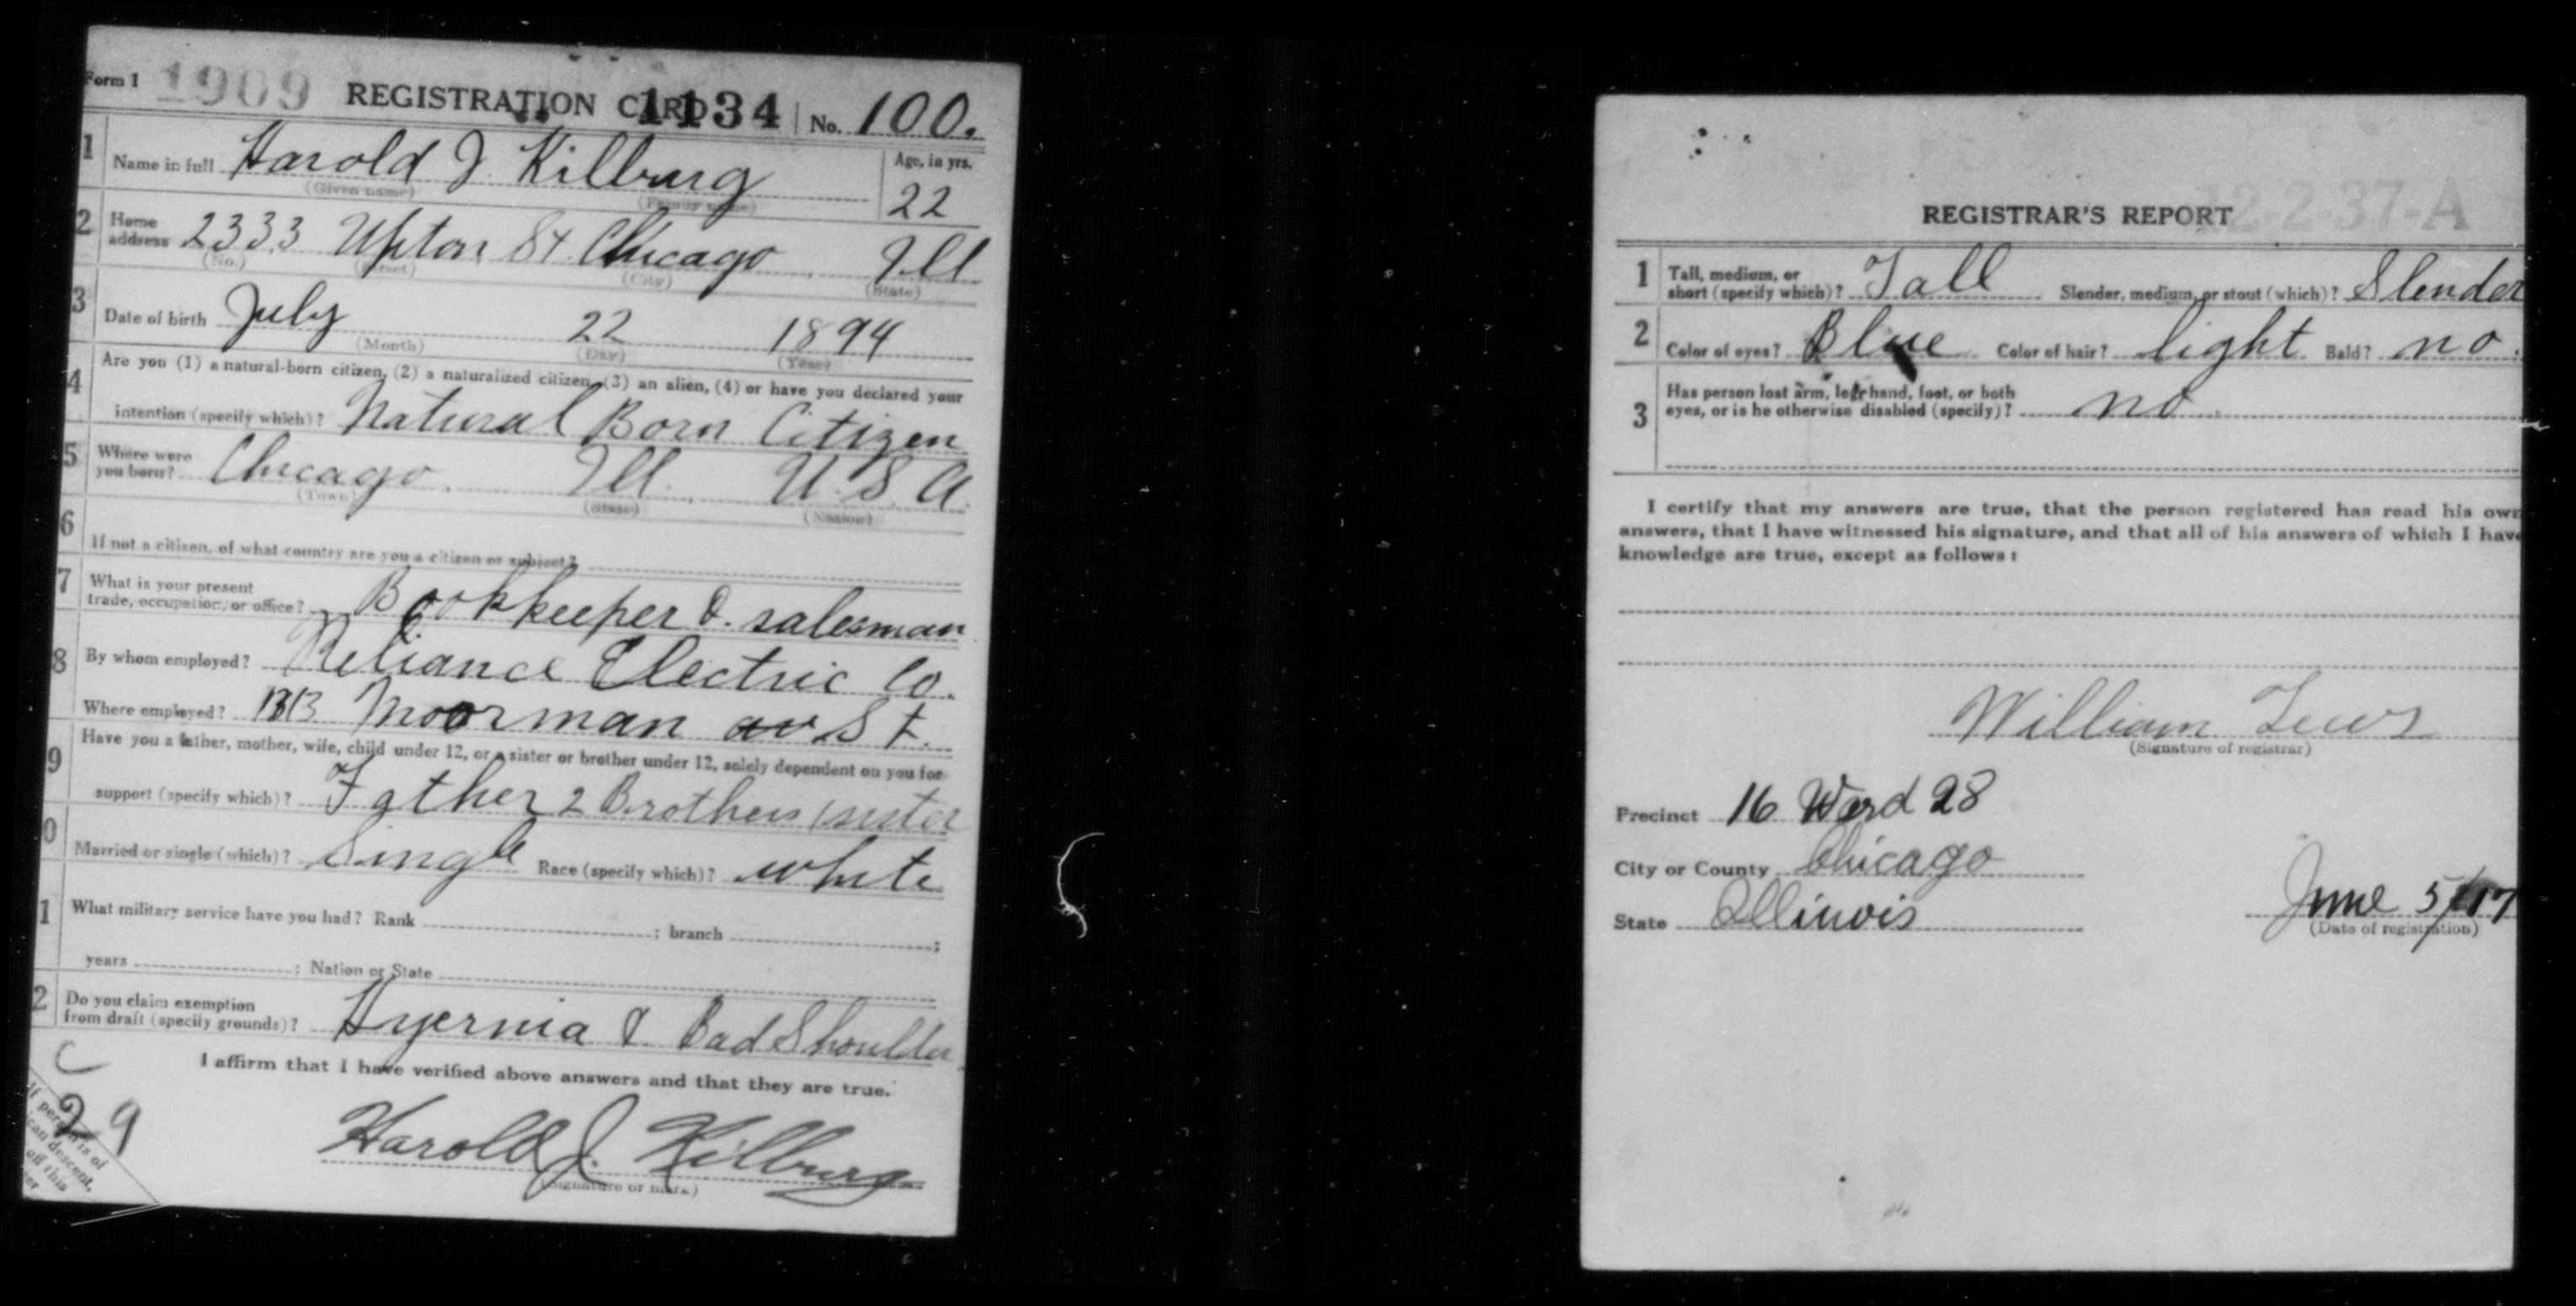 Form 1 1909 REGISTRATION CARD 1134 No. 100.
1 Name in full Harold J. Kilburg Age, in yrs.
(Given name) (Family name) 22
2 Home address 2333 Upton St. Chicago Ill
(No.) (Street) (City) (State)
3 Date of birth July 22 1894
(Month) (Day) (Year)
4 Are you (1) a natural-born citizen, (2) a naturalized citizen, (3) an alien, (4) or have you declared your
intention (specify which)? Natural Born Citizen
5 Where were you born? Chicago Ill. U. S. A.
(Town) (State) (Nation)
6 If not a citizen, of what country are you a citizen or subject?
7 What is your present
trade, occupation, or office? Bookkeeper & salesman
8 By whom employed? Reliance Electric Co.
Where employed? 1313 Moorman av St.
9 Have you a father, mother, wife, child under 12, or a sister or brother under 12, solely dependent on you for
support (specify which)? Father 2 Brothers 1 sister
0 Married or single (which)? Single Race (specify which)? white
1 What military service have you had? Rank ; branch ;
years ; Nation or State
2 Do you claim exemption
from draft (specify grounds)? Hyernia & Bad Shoulder
I affirm that I have verified above answers and that they are true.
C
29
If person is of
ican descent,
off this
er
Harold J. Kilburg
(Signature or mark)
12-2-37-A
REGISTRAR'S REPORT
1 Tall, medium, or
short (specify which)? Tall Slender, medium, or stout (which)? Slender
2 Color of eyes? Blue Color of hair? light Bald? no.
3 Has person lost arm, leg, hand, foot, or both
eyes, or is he otherwise disabled (specify)? no
I certify that my answers are true, that the person registered has read his own
answers, that I have witnessed his signature, and that all of his answers of which I have
knowledge are true, except as follows:
William Tews
(Signature of registrar)
Precinct 16 Ward 28
City or County Chicago
State Illinois
June 5/17
(Date of registration)